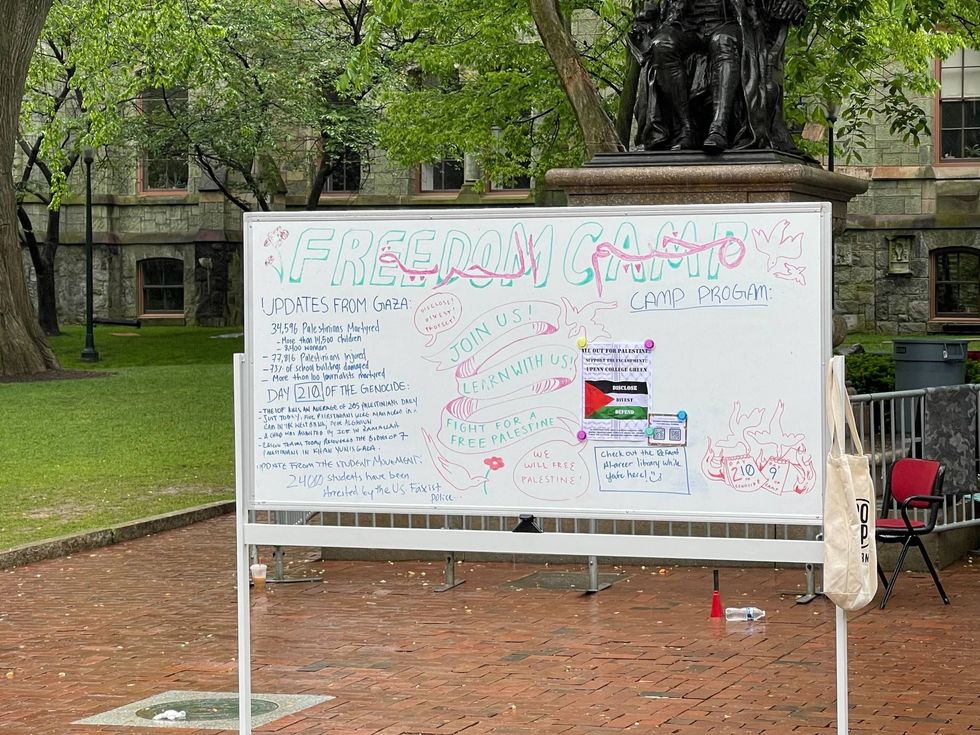 FREEDOM CAMP
مخيم الحرية
UPDATES FROM GAZA:
34,596 Palestinians Martyred
- More than 14,500 children
- 8,400 woman
- 77,816 Palestinians Injured
- 737 of school buildings damaged
- More than 100 Journalists martyred
DAY 210 OF THE GENOCIDE:
- THE IOF KILLS AN AVERAGE OF 205 PALESTINIANS DAILY
- JUST TODAY, FIVE PALESTINIANS WERE
IN THE WEST BANK,
- A CHILD WAS
- TEAMS TODAY RECOVERED THE BODIES OF 7
PALESTINIANS IN KHAN YUNIS GAZA.
UPDATE FROM THE STUDENT MOVEMENT:
students have been
arrested by the U.S. Facist
police...
DISCLOSE!
DIVEST!
PROTECT!
JOIN US!
LEARN WITH US!
FIGHT FOR A
FREE PALESTINE
WE
WILL FREE
PALESTINE!
CAMP PROGAM:
ALL OUT FOR PALESTINE
SUPPORT THE ENCAMPMENT!
UPENN COLLEGE GREEN
DISCLOSE
DIVEST
DEFEND
Check out the Refaat
Alareer library while
you're here!
DAY
210
OF GENOCIDE
DAY
9
OF CAMP